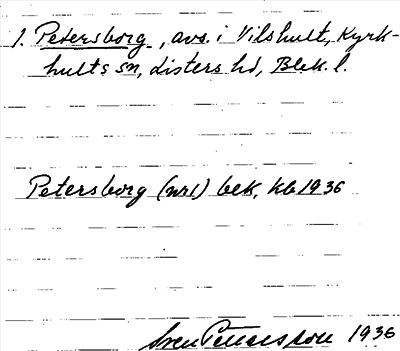 1. Petersborg, avs. i Vilshult, Kyrk-
hults sn, Listers hd, Blek. l.
Petersborg (nr1) bek, kb 1936
Sven Pettersson 1936